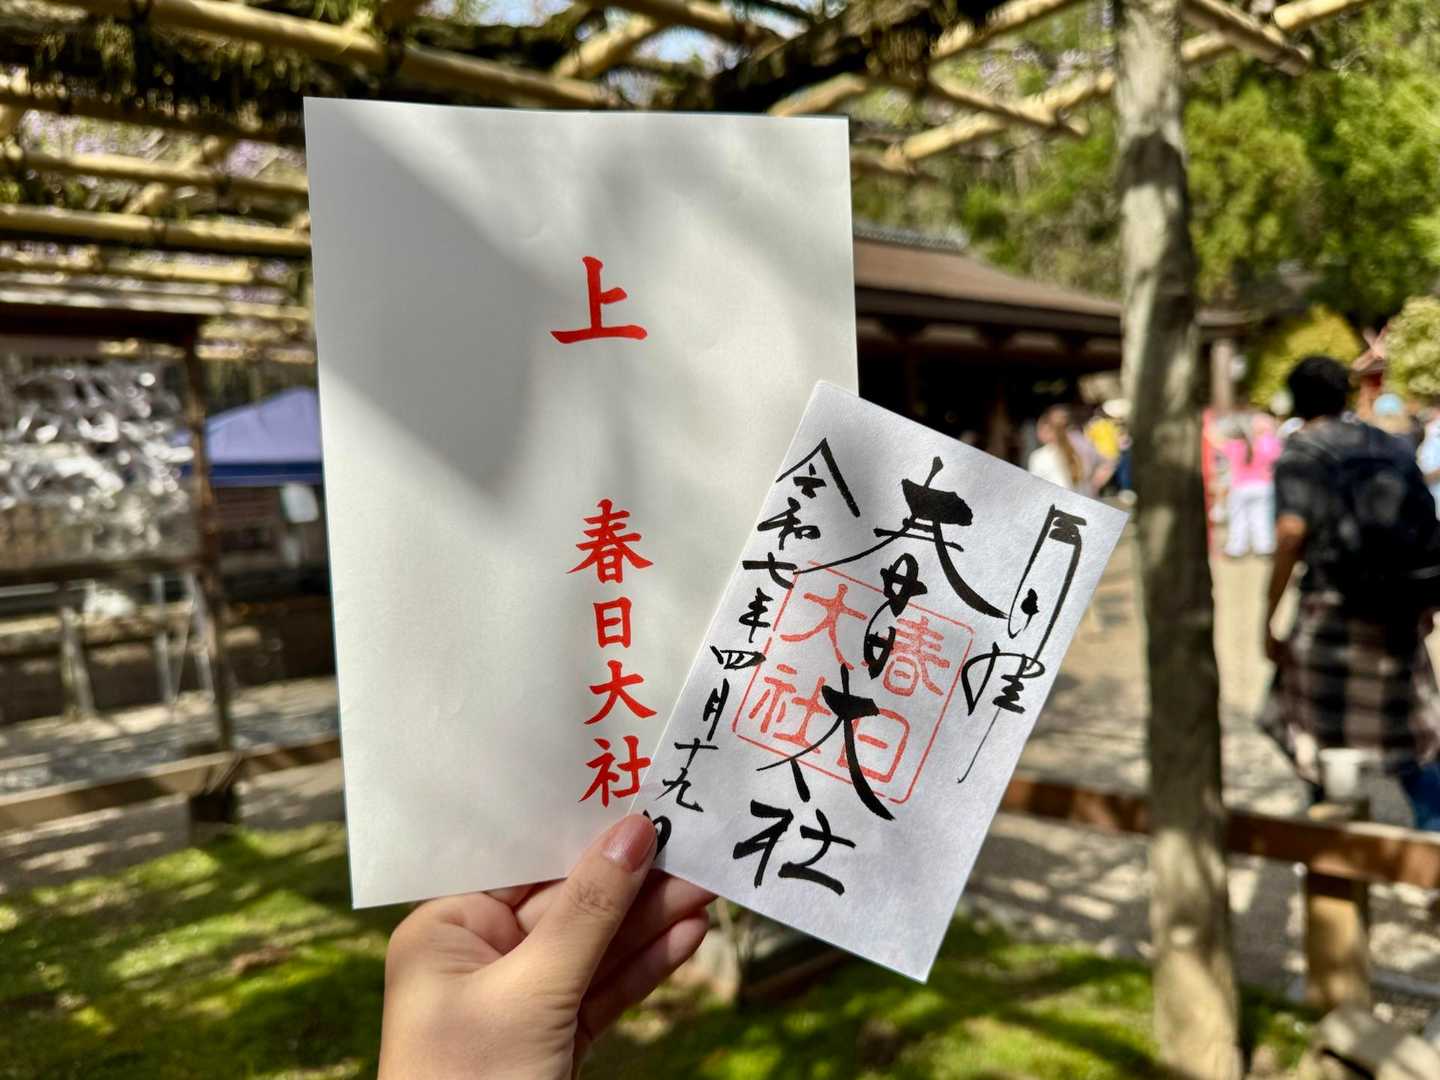 上
春日大社
春日大社
春日
大社
令和七年四月十九日